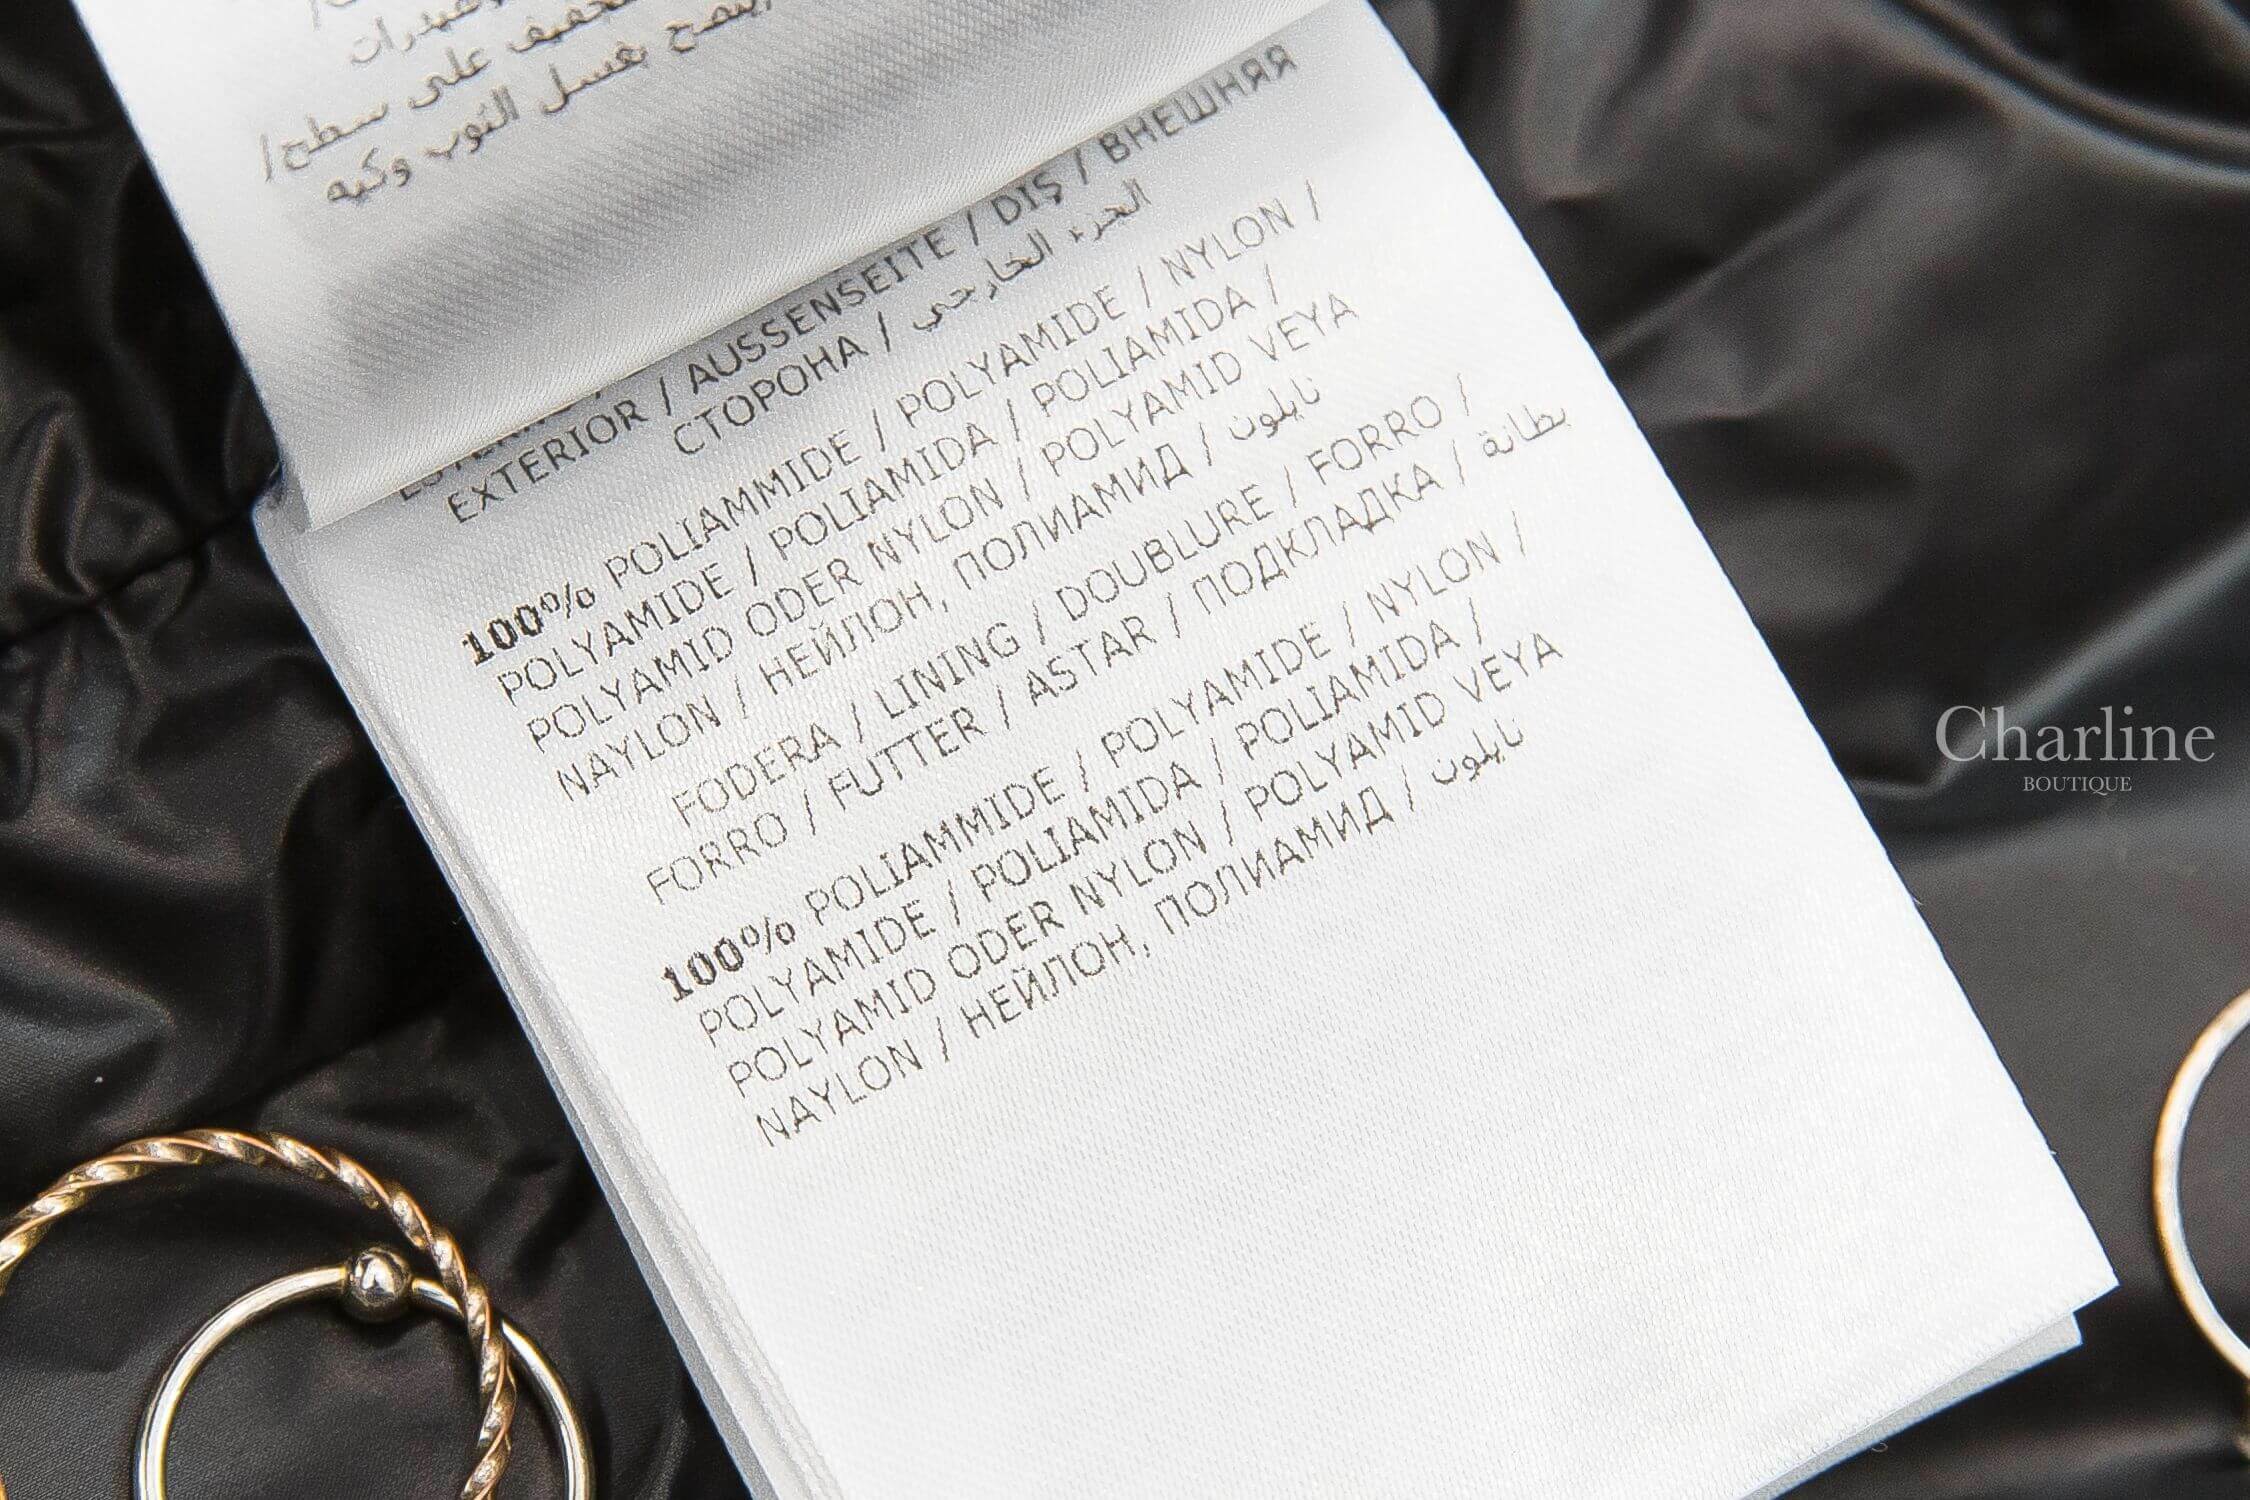 تجفيف على سطح/
بغسل الثوب وكيه
EXTERIOR / AUSSENSEITE / DIŞ / ВНЕШНЯЯ
СТОРОНА / الجزء الخارجي
100% POLIAMMIDE / POLYAMIDE / NYLON /
POLYAMIDE / POLIAMIDA / POLIAMIDA /
POLYAMID ODER NYLON / POLYAMID VEYA
NAYLON / НЕЙЛОН, ПОЛИАМИД / نايلون
FODERA / LINING / DOUBLURE / FORRO /
FORRO / FUTTER / ASTAR / ПОДКЛАДКА / بطانة
100% POLIAMMIDE / POLYAMIDE / NYLON /
POLYAMIDE / POLIAMIDA / POLIAMIDA /
POLYAMID ODER NYLON / POLYAMID VEYA
NAYLON / НЕЙЛОН, ПОЛИАМИД / نايلون
Charline
BOUTIQUE